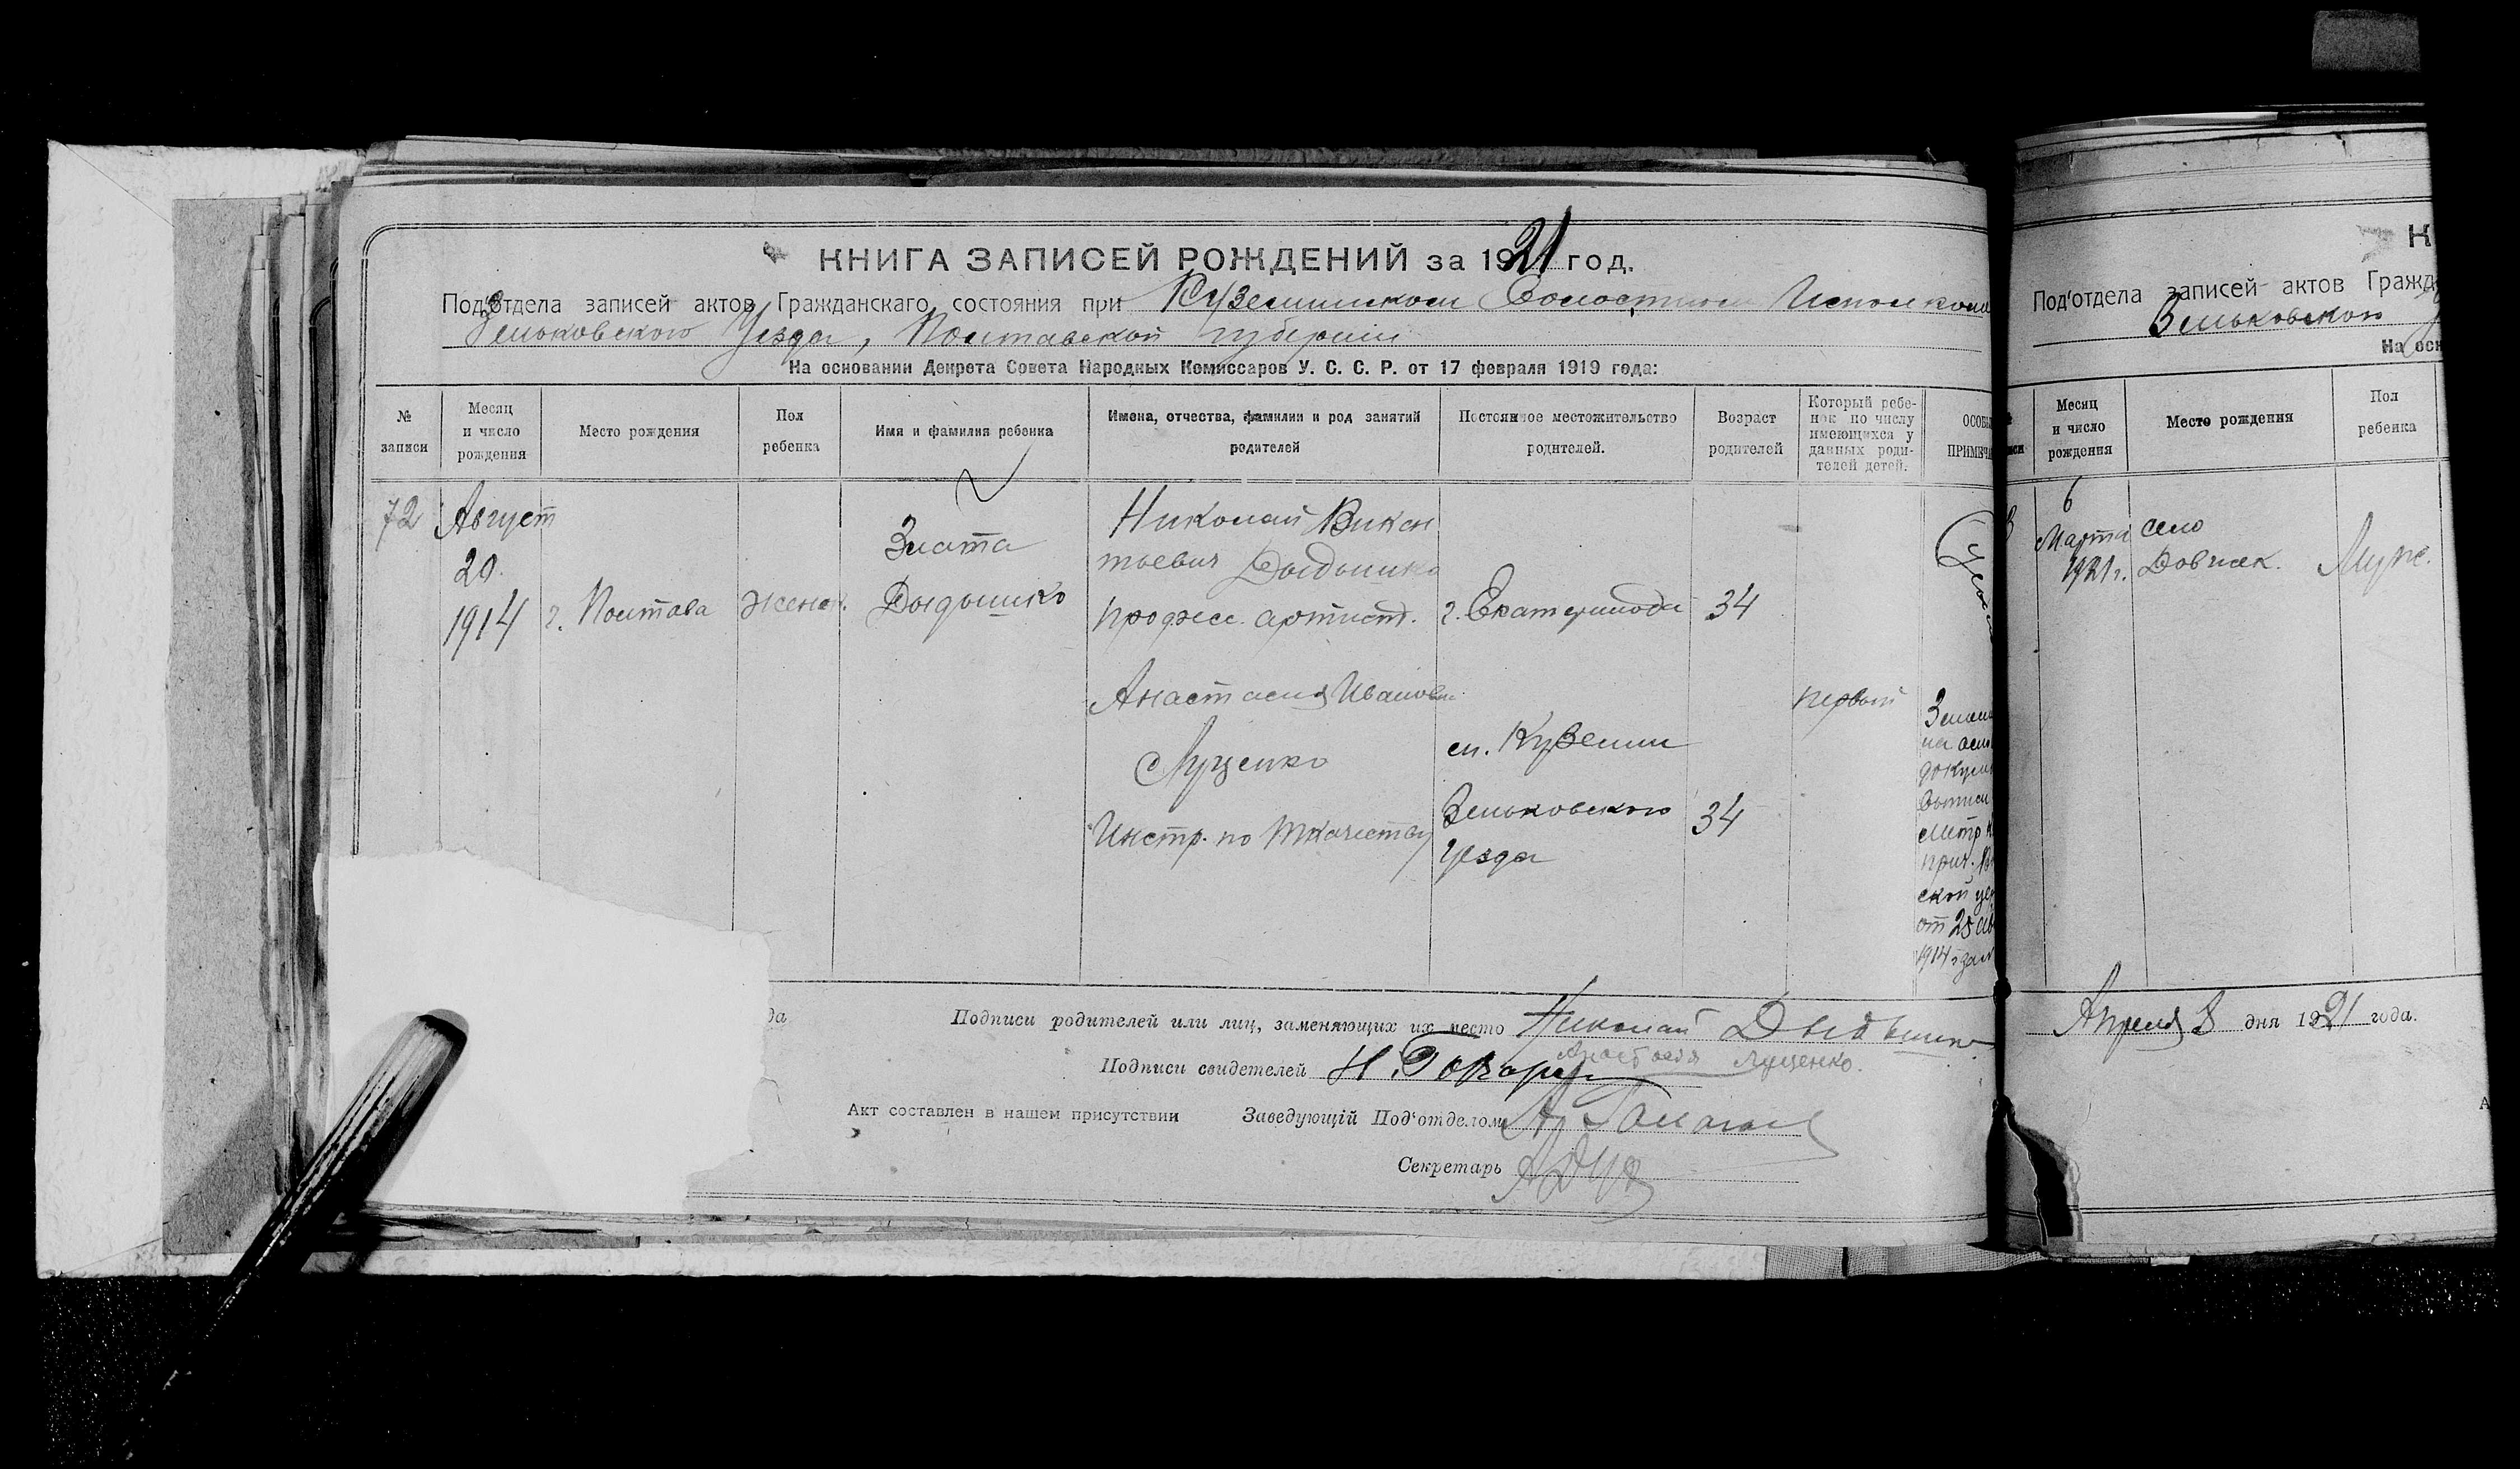 КНИГА ЗАПИСЕЙ РОЖДЕНИЙ за 1921 год.
Под'отдела записей актов Гражданскаго состояния при Куземинском Волостном Исполкоме
Зеньковского Уезда, Полтавской губернии
На основании Декрета Совета Народных Комиссаров У. С. С. Р. от 17 февраля 1919 года:
№ записи
Месяц и число рождения
Место рождения
Пол ребенка
Имя и фамилия ребенка
Имена, отчества, фамилии и род занятий родителей
Постоянное местожительство родителей.
Возраст родителей
Который ребе-
нок по числу
имеющихся у
данных роди-
телей детей.
ОСОБЫ
ПРИМЕЧА
72
Август
20.
1914
г. Полтава
женск.
Злата
Дыдышко
Николай Викен
тьевич Дыдышко
професс. артист.
г. Екатеринода
34
Анастасия Ивановн
Луценко
Инстр. по ткачеству
см. Куземин
Зеньковского
Уезда
34
первый
на осно
докуме
выписи
метр к
прич.
ской це
от 25 ав
1914 г
да
Подписи родителей или лиц, заменяющих их место Николай Дыдышко
Анастасия Луценко.
Подписи свидетелей
Акт составлен в нашем присутствии Заведующій Под'отделом
Секретарь
К
Под'отдела записей актов Гражд
Зеньковского
На осн
Месяц и число рождения
Место рождения
Пол ребенка
6
Марта
1921 г.
село
Довжек.
Муж.
Апреля 8 дня 1921 года.
А